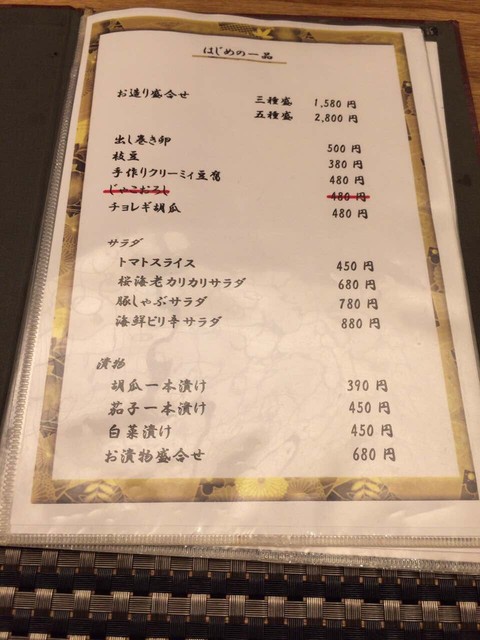 はじめの一品
お造り盛合せ 三種盛 1,580 円
五種盛 2,800 円
出し巻き卵 500 円
枝豆 380 円
手作りクリーミィ豆腐 480 円
じゃこおろし 480 円
チョレギ胡瓜 480 円
サラダ
トマトスライス 450 円
桜海老カリカリサラダ 680 円
豚しゃぶサラダ 780 円
海鮮ピリ辛サラダ 880 円
漬物
胡瓜一本漬け 390 円
茄子一本漬け 450 円
白菜漬け 450 円
お漬物盛合せ 680 円